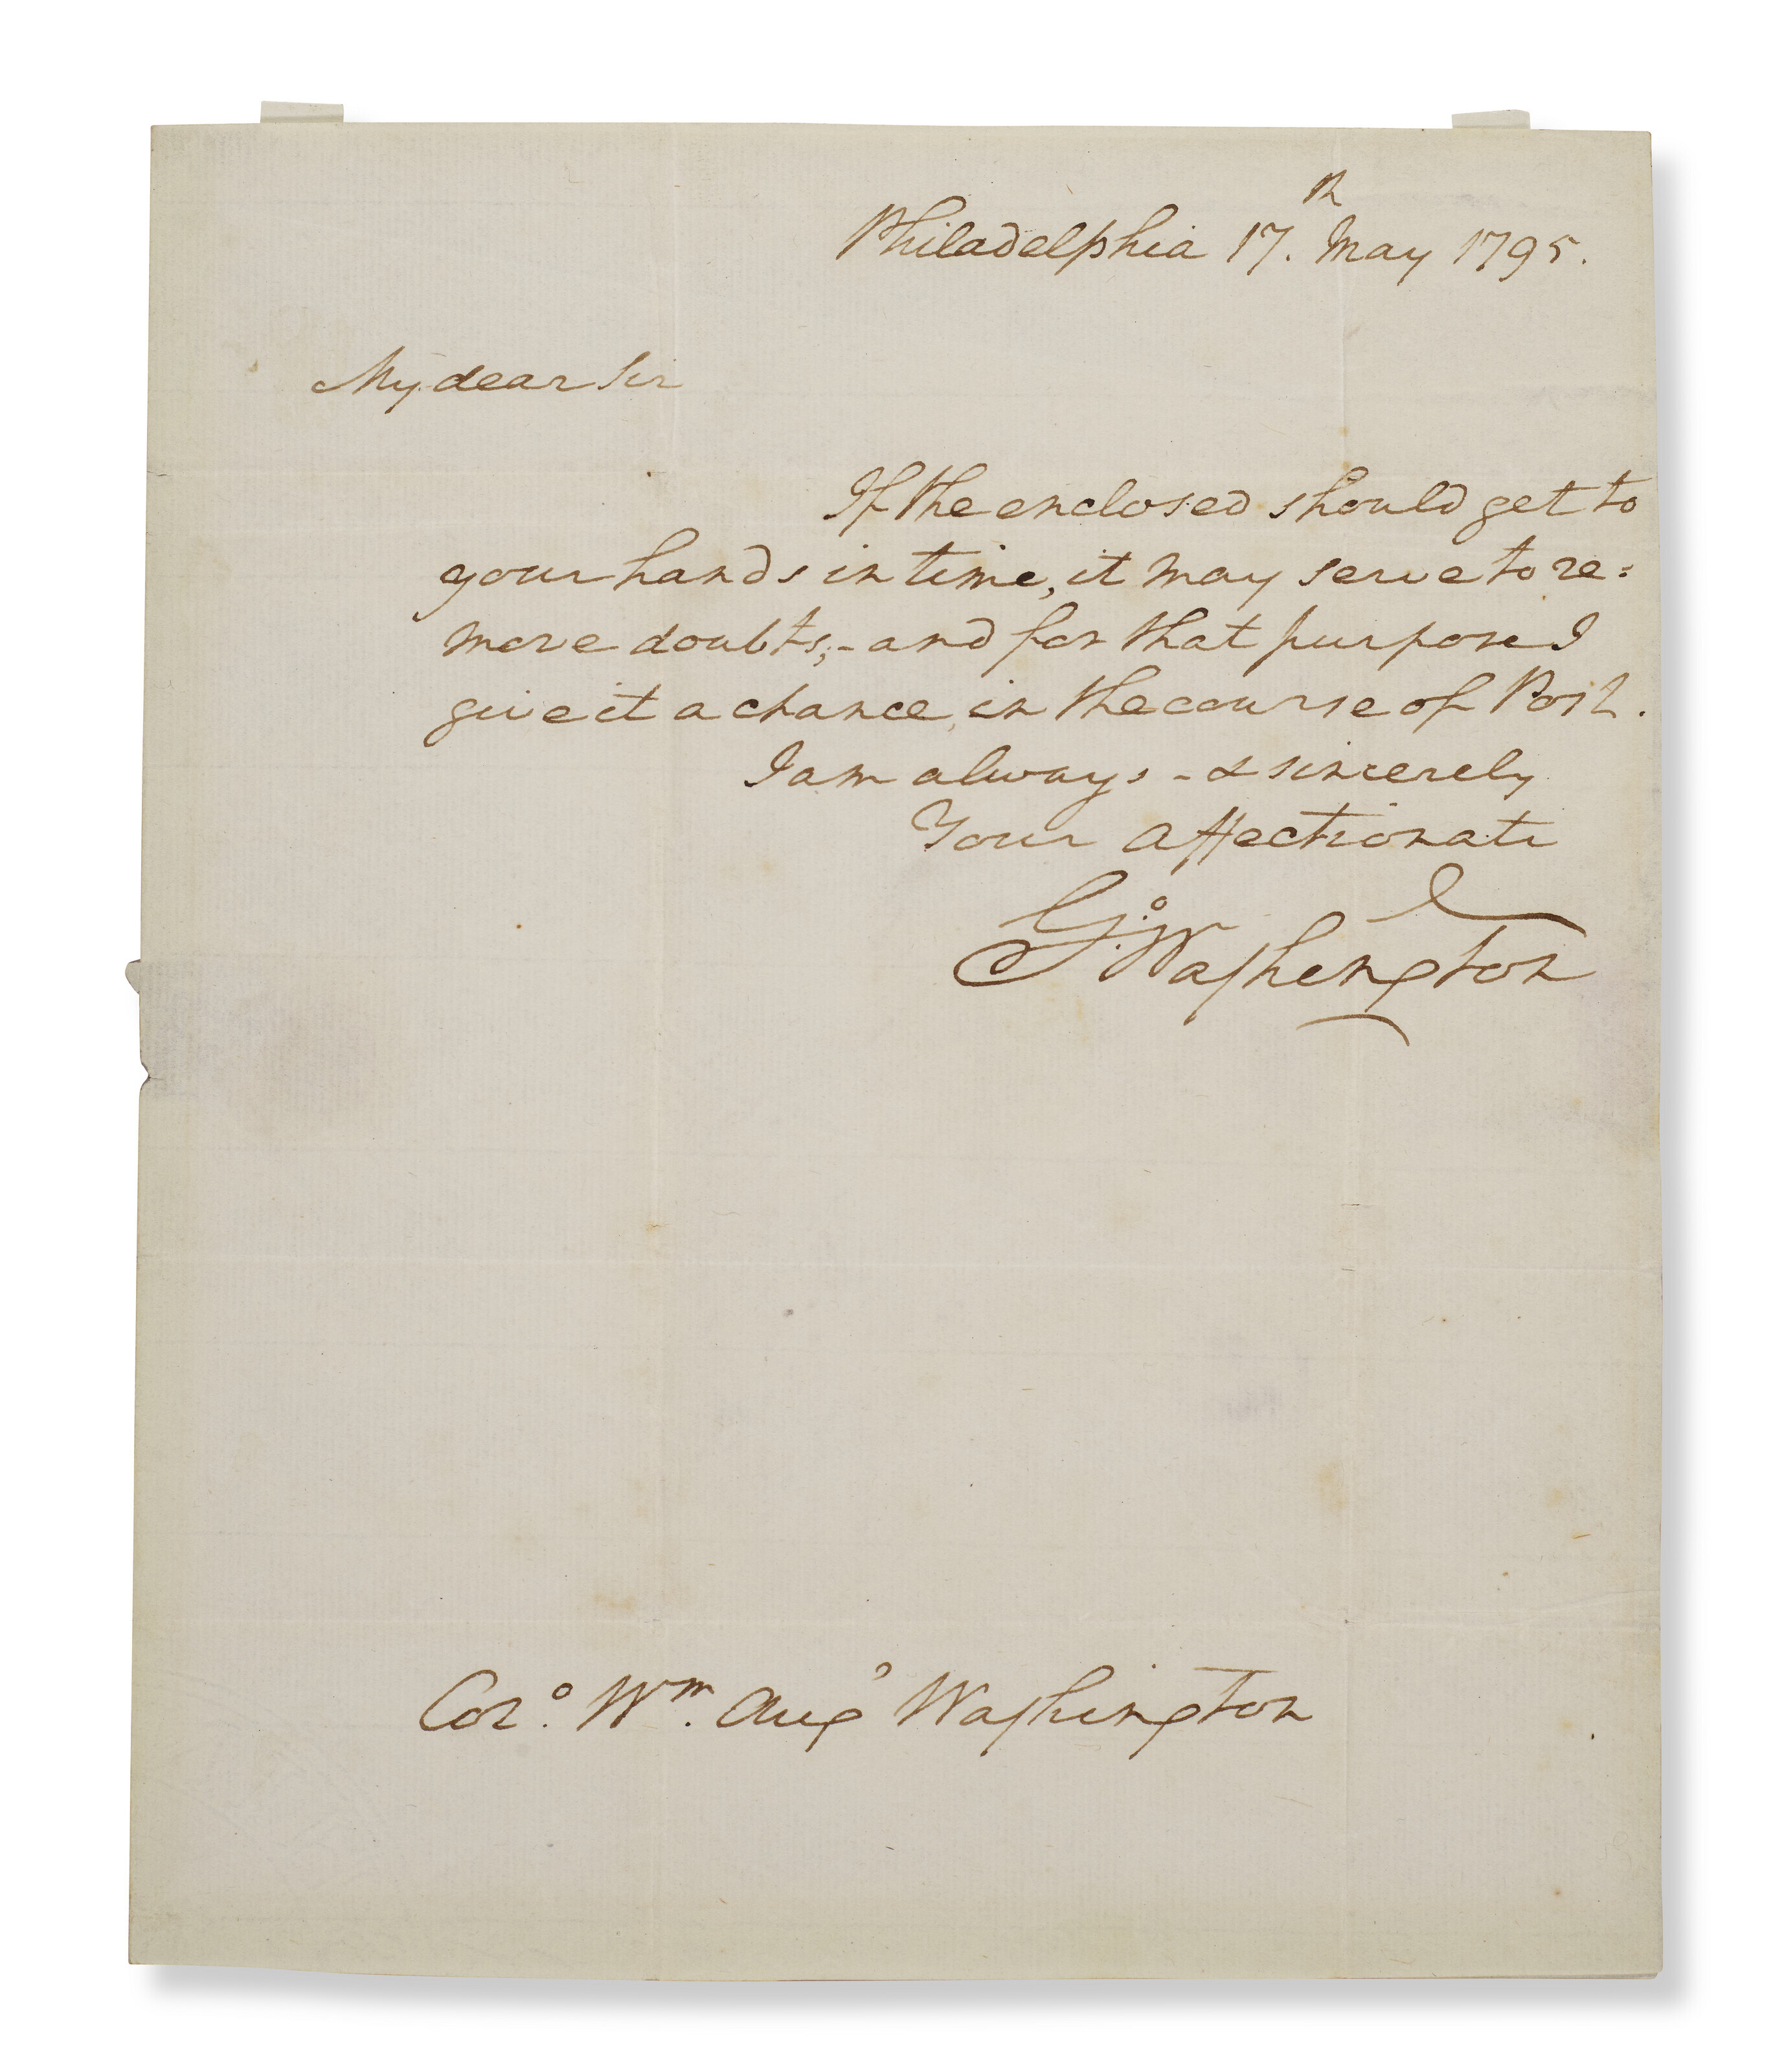 Philadelphia 17.th May 1795.
My dear Sir
If the enclosed should get to
your hands in time, it may serve to re=
move doubts;-and for that purpose I
give it a chance, in the course of Post.
I am always - & sincerely
Your Affectionate
Go: Washington
Colo. Wm. Augs Washington